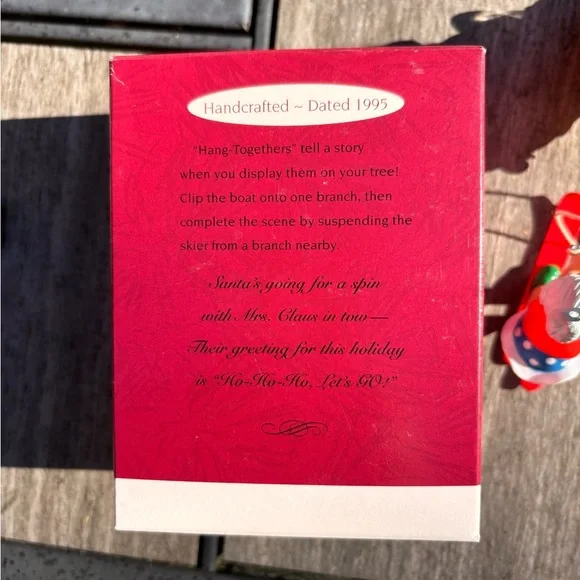 Handcrafted ~ Dated 1995
"Hang-Togethers" tell a story
when you display them on your tree!
Clip the boat onto one branch, then
complete the scene by suspending the
skier from a branch nearby.
Santa's going for a spin
with Mrs. Claus in tow—
Their greeting for this holiday
is "Ho-Ho-Ho, Let's GO!"